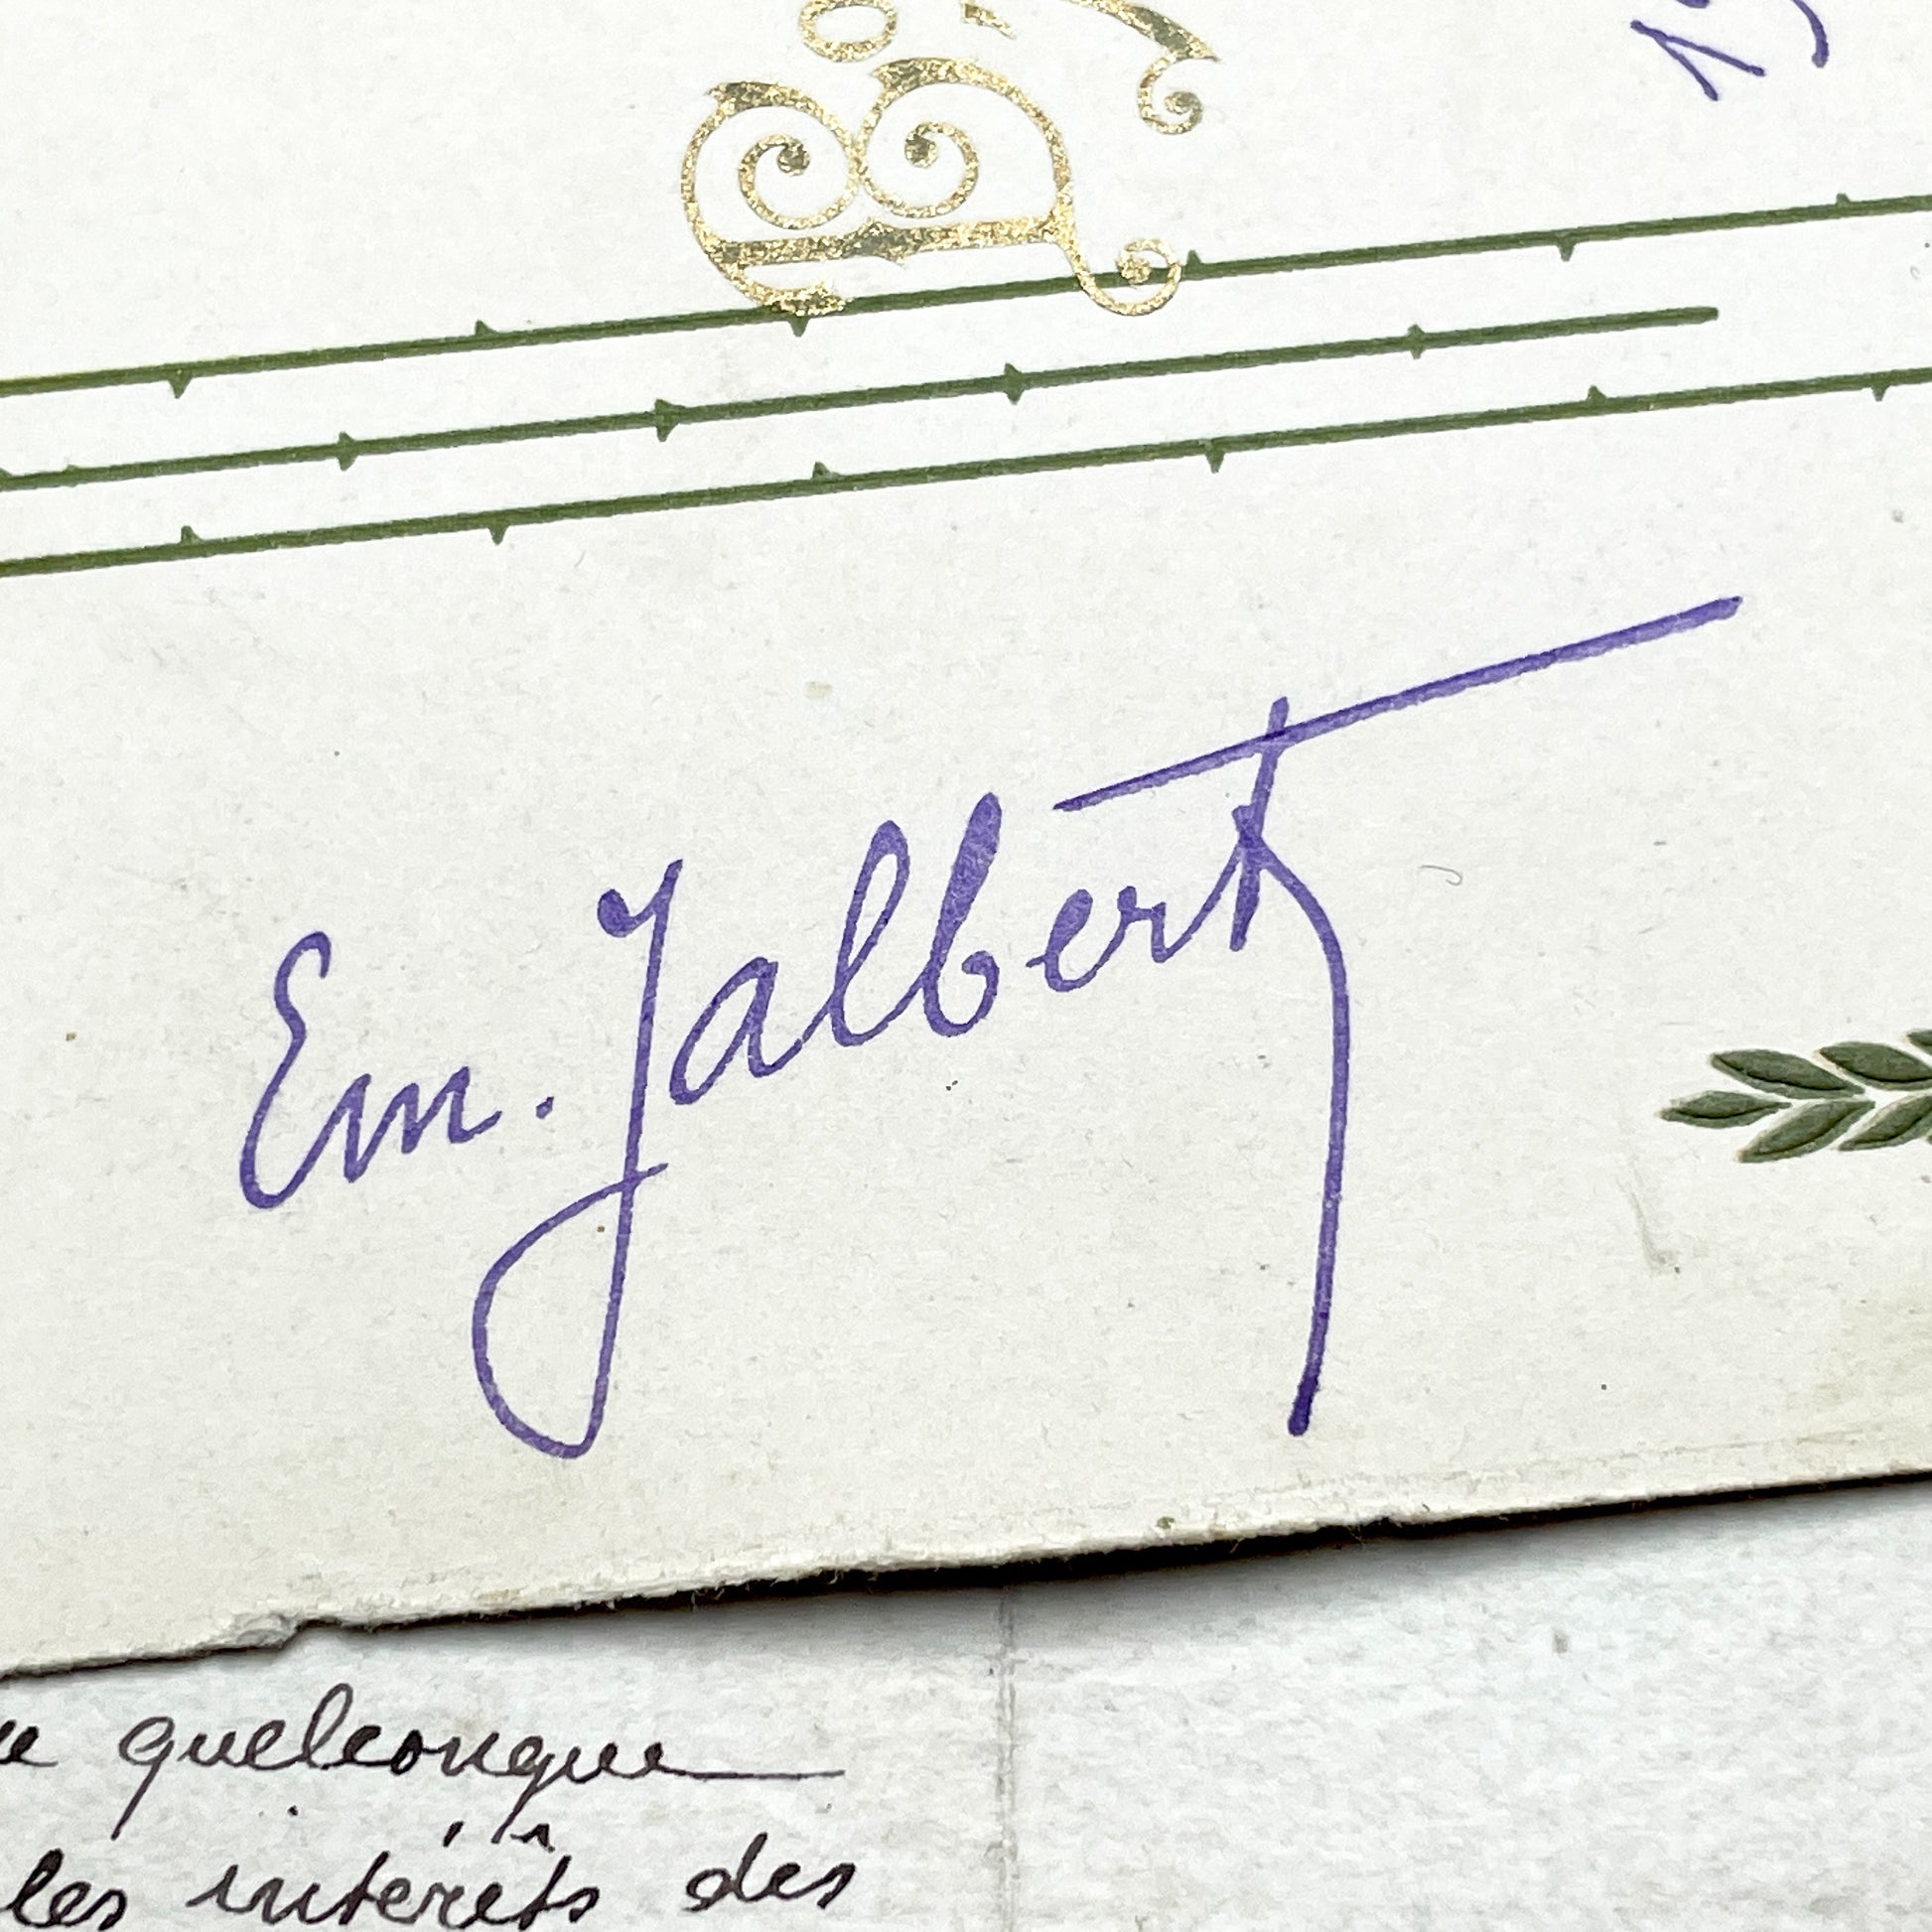 Em. Jalbert
quelconque
les intérêts des